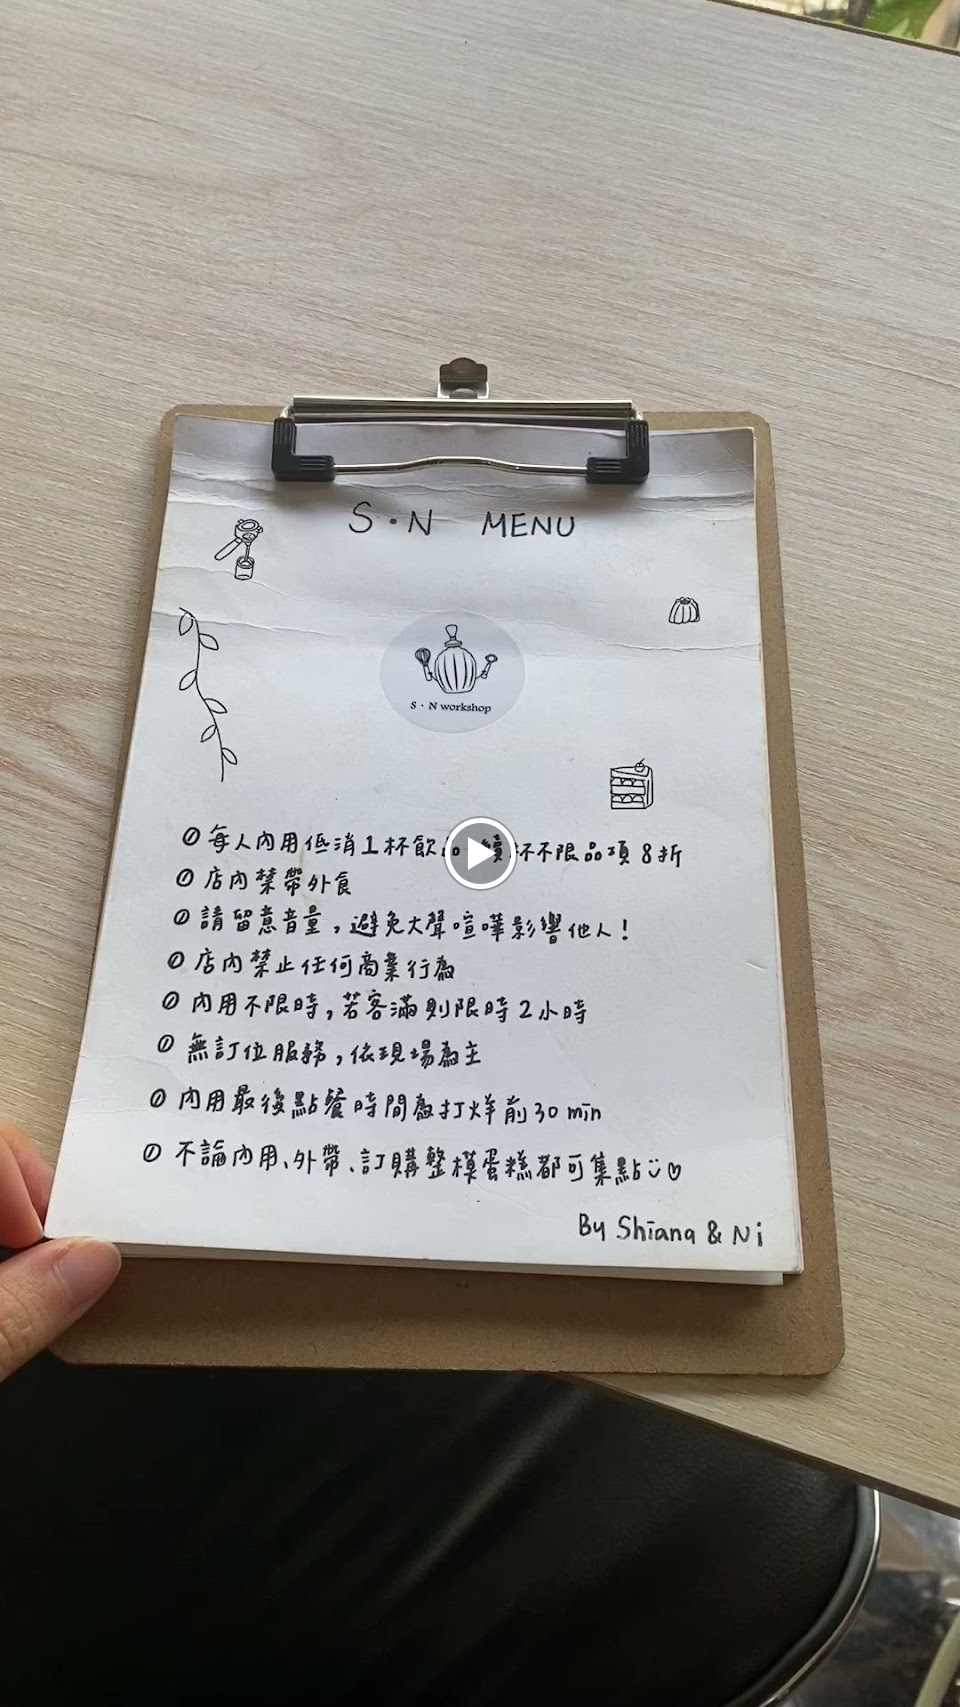 S·N MENU
S·N workshop
每人內用低消1杯飲 續杯不限品項8折
店內禁帶外食
請留意音量,避免大聲喧嘩影響他人!
店內禁止任何商業行為
內用不限時,若客滿則限時2小時
無訂位服務,依現場為主
內用最後點餐時間為打烊前30 min
不論內用、外帶、訂購整模蛋糕都可集點
By Shiana & Ni